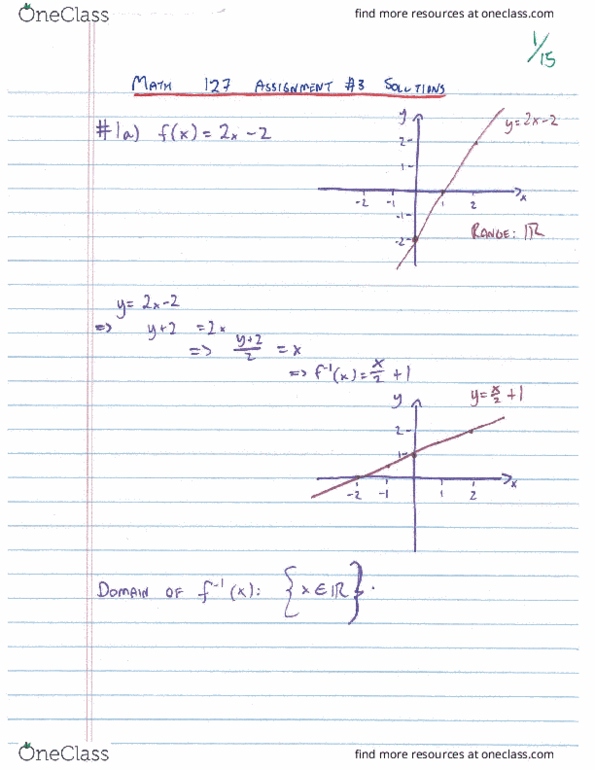 OneClass
find more resources at oneclass.com
1/15
MATH 127 ASSIGNMENT #3 SOLUTIONS
#1a) f(x) = 2x - 2
y
y = 2x - 2
2
1
-2 -1 1 2 x
-1
-2
RANGE: ℝ
y = 2x - 2
=> y + 2 = 2x
=> y+2/2 = x
=> f⁻¹(x) = x/2 + 1
y
y = x/2 + 1
2
1
-2 -1 1 2 x
DOMAIN OF f⁻¹(x): {x ∈ ℝ}.
OneClass
find more resources at oneclass.com